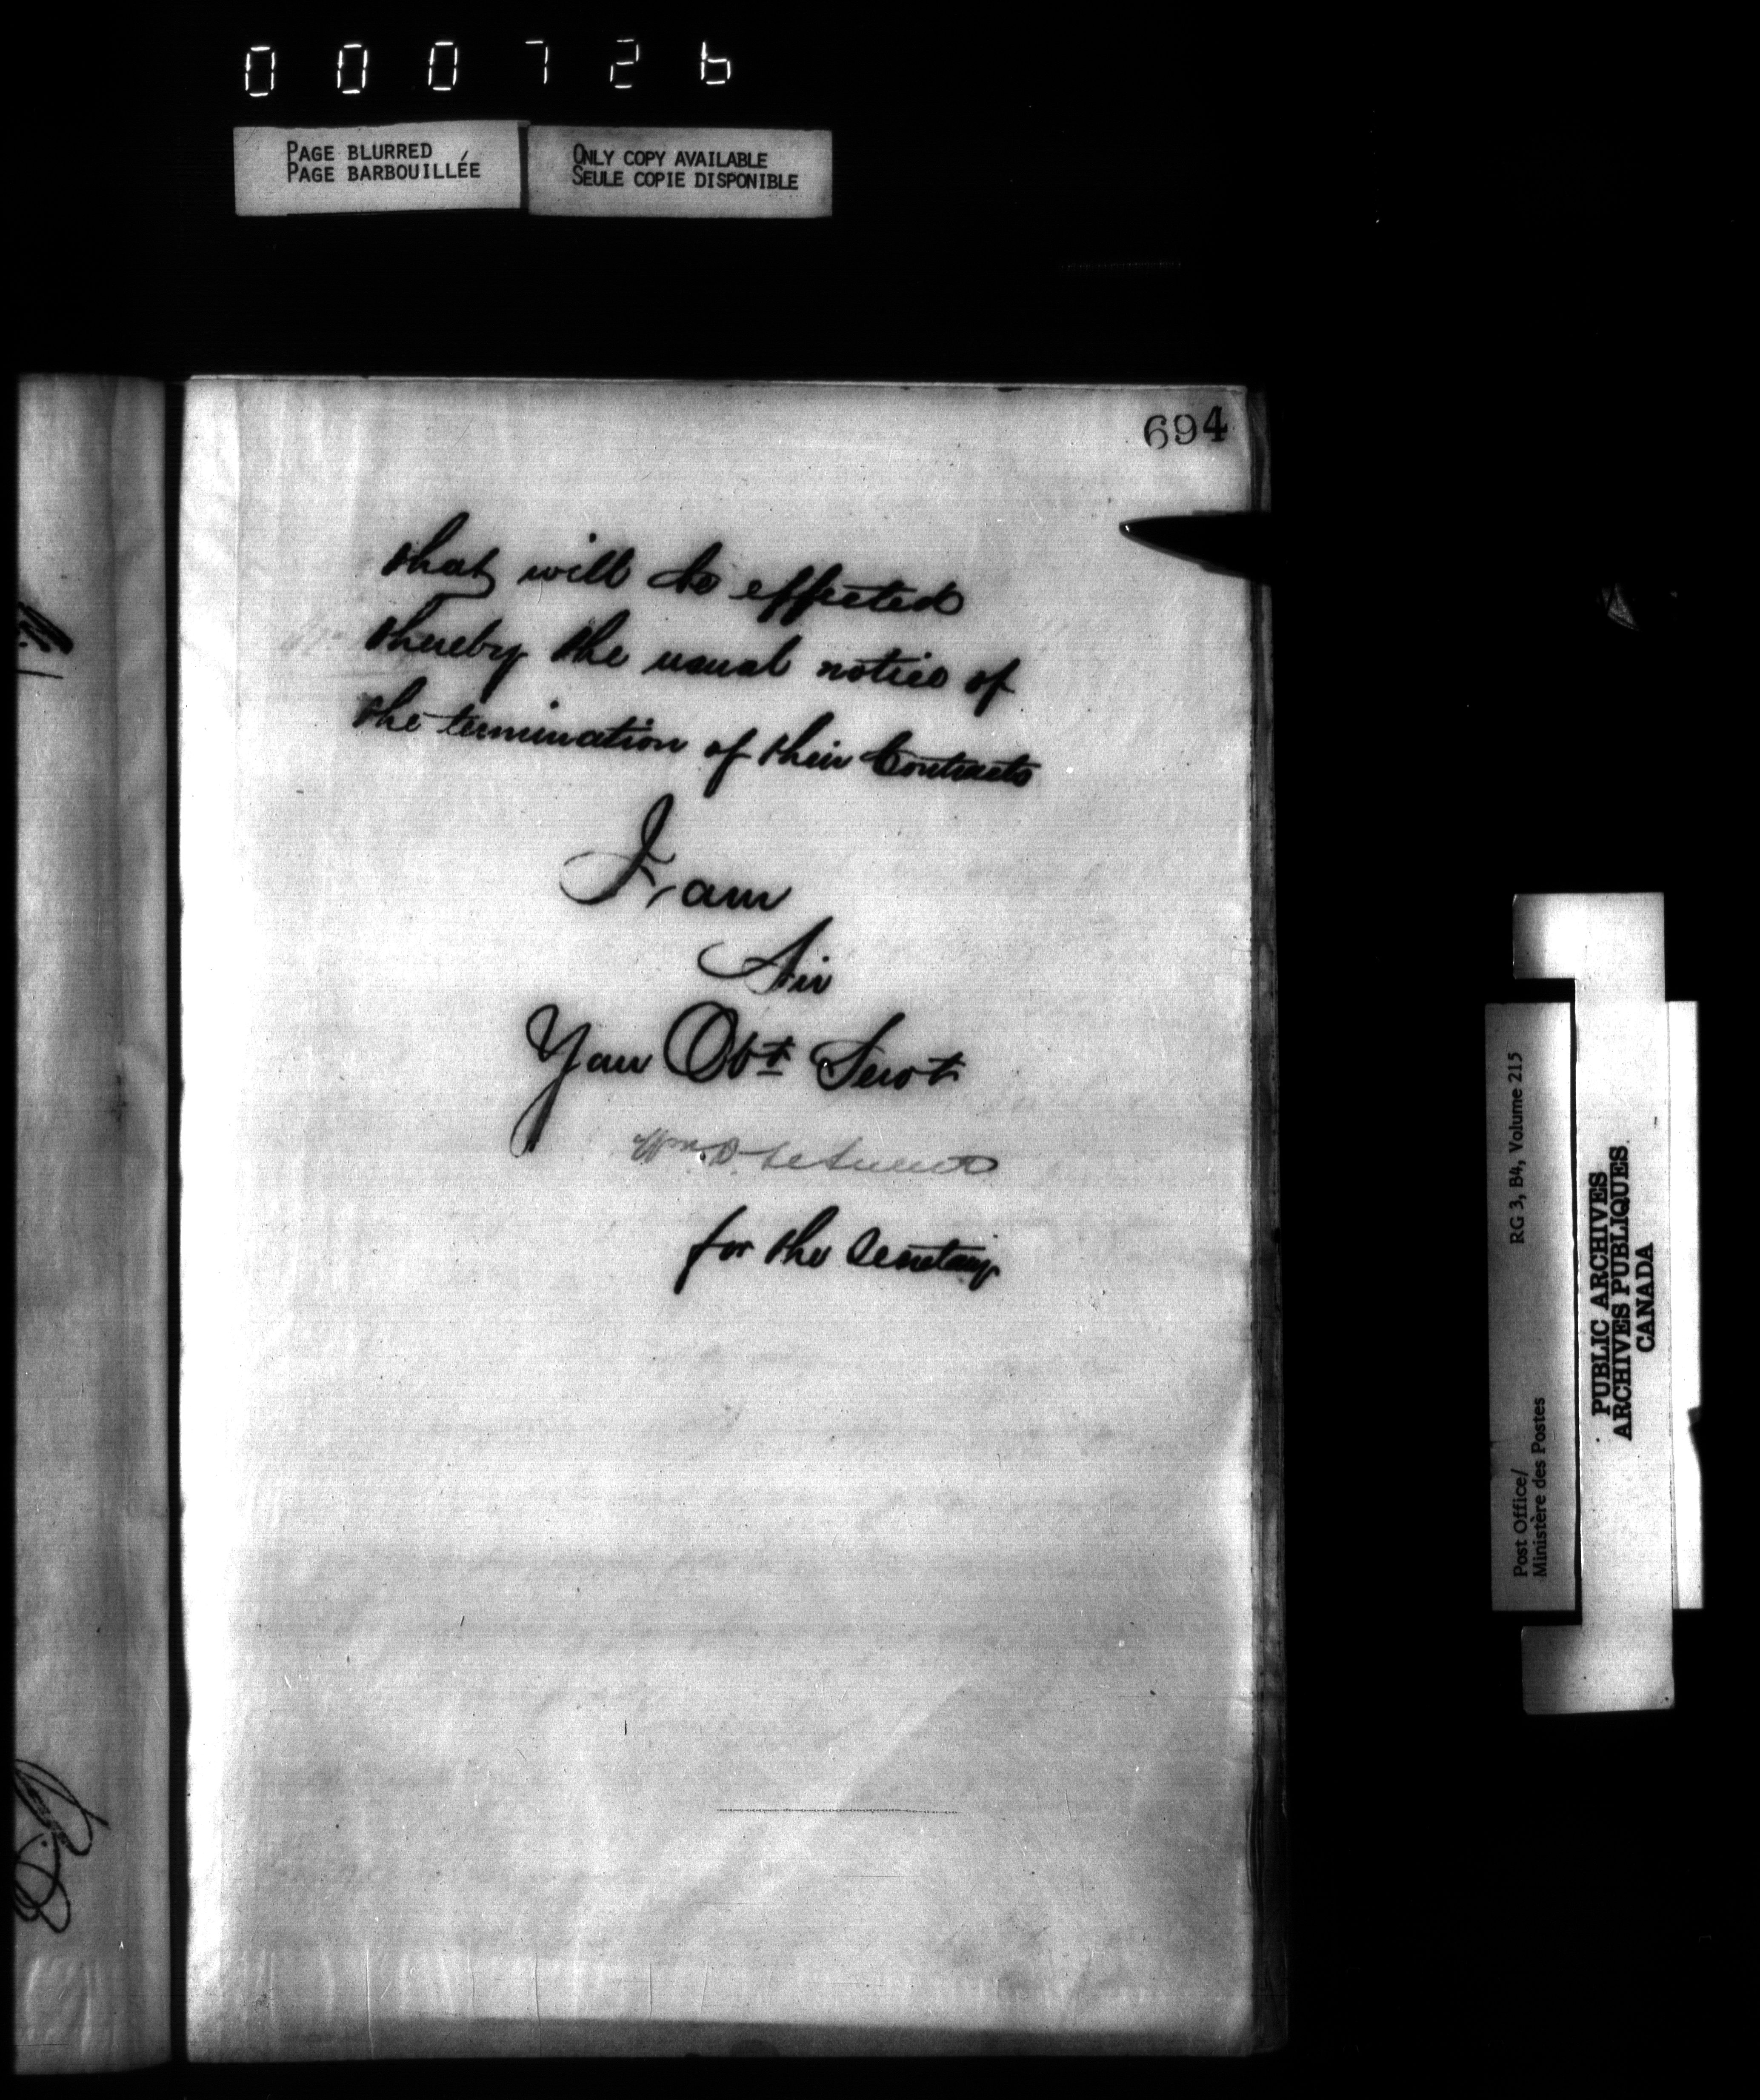 000726
PAGE BLURRED
PAGE BARBOUILLÉE
ONLY COPY AVAILABLE
SEULE COPIE DISPONIBLE
694
that will be effected
thereby the usual notice of
the termination of their Contracts
I am
Sir
Your Obt Servt
Wm.
for the Secretary
RG 3, B4, Volume 215
Post Office/
Ministère des Postes
PUBLIC ARCHIVES
ARCHIVES PUBLIQUES
CANADA